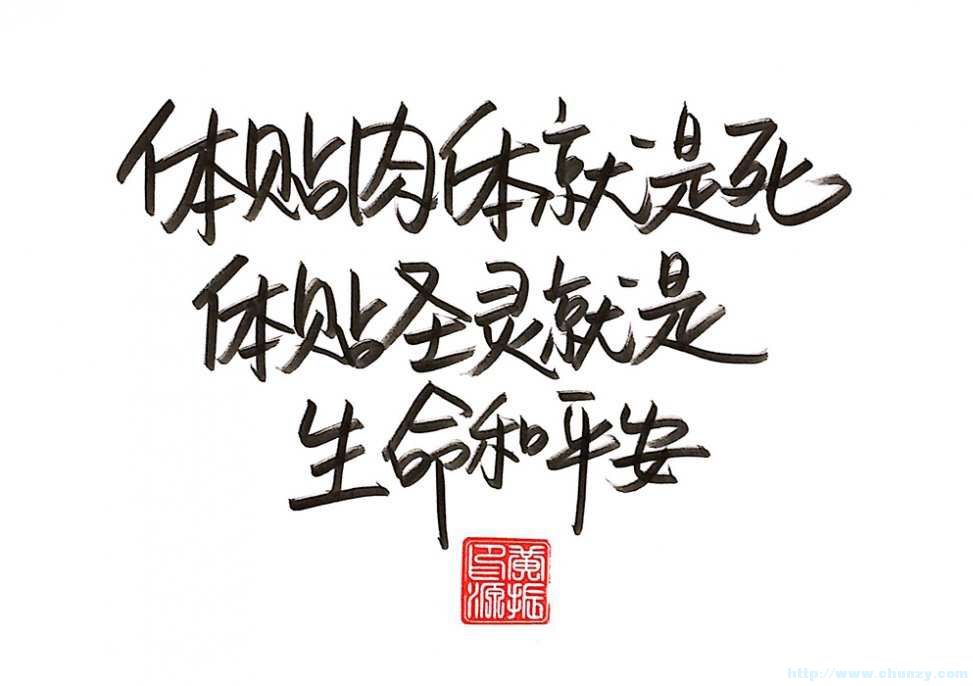 体贴肉体就是死
体贴圣灵就是
生命和平安
黄振
源印
http://www.chunzy.com